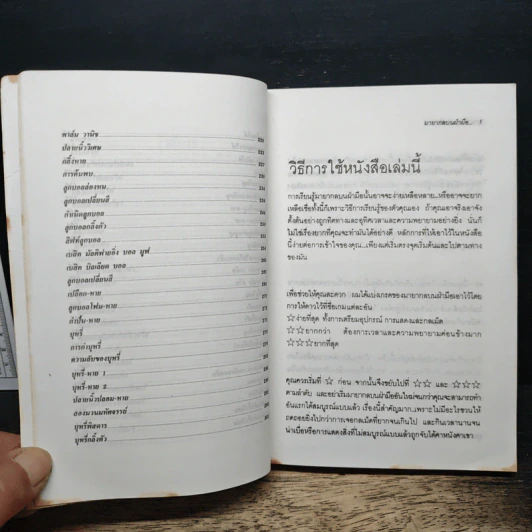 ปาล์ม วานิช
ปลายนิ้ววิเศษ
กลิ้งหาย
การคืนพบ
ลูกบอลล่องหน
ลูกบอลเปลี่ยนสี
กำเนิดลูกบอล
ลูกบอลกลิ้งตัว
ลิฟท์ลูกบอล
เบสิค มัลติพายอิ้ง บอล มูฟ
เบสิค บิลเลียด บอล
ลูกบอลเปลี่ยนสี
เปลือก-หาย
ลูกบอลโฟม-หาย
กำปั้น-หาย
บุหรี่
การกำบุหรี่
ความลับของบุหรี่
บุหรี่-หาย 1
บุหรี่-หาย 2
ปลายนิ้วปลอม-หาย
บุหรี่กลิ้งตัว
มายากลบนฝ่ามือ...
วิธีการใช้หนังสือเล่มนี้
การเรียนรู้มายากลบนฝ่ามือนั้นอาจจะง่ายเหลือหลาย...หรืออาจจะยาก
เหลือเชื่อทั้งนี้ก็เพราะวิธีการเรียนรู้ของตัวคุณเอง ถ้าคุณเอาจริงเอาจัง
ตั้งต้นอย่างถูกทิศทางและอุทิศเวลาและความพยายามอย่างยิ่ง นั่นก็
ไม่ใช่เรื่องยากที่คุณจะทำมันได้อย่างดี หลักการที่ให้เอาไว้ในหนังสือ
นี้ง่ายต่อการเข้าใจของคุณ...เพียงแต่เริ่มตรงจุดเริ่มต้นและไปตามทาง
ของมัน
เพื่อช่วยให้คุณสะดวก ผมได้แบ่งเกรดของมายากลบนฝ่ามือเอาไว้โดย
การให้ดาวไว้ที่ชื่อเกมแต่ละอัน
☆ง่ายที่สุด ทั้งการเตรียมอุปกรณ์ การแสดงและกลเม็ด
☆☆ยากกว่า ต้องการเวลาและความพยายามค่อนข้างมาก
☆☆☆ยากที่สุด
คุณควรเริ่มที่ ☆ ก่อน จากนั้นจึงขยับไปที่ ☆☆ และ ☆☆☆
ตามลำดับ และอย่าเริ่มมายากลบนฝ่ามืออันใหม่จนกว่าคุณจะสามารถทำ
อันแรกได้สมบูรณ์แบบแล้ว เรื่องนี้สำคัญมาก...เพราะไม่มีอะไรชวนให้
ถดถอยยิ่งไปกว่าการเจอกลเม็ดที่ยากจนเกินไป และกินเวลานานจน
น่าเบื่อหรือการแสดงสิ่งที่ไม่สมบูรณ์แบบแล้วถูกจับได้คาหนังคาเขา